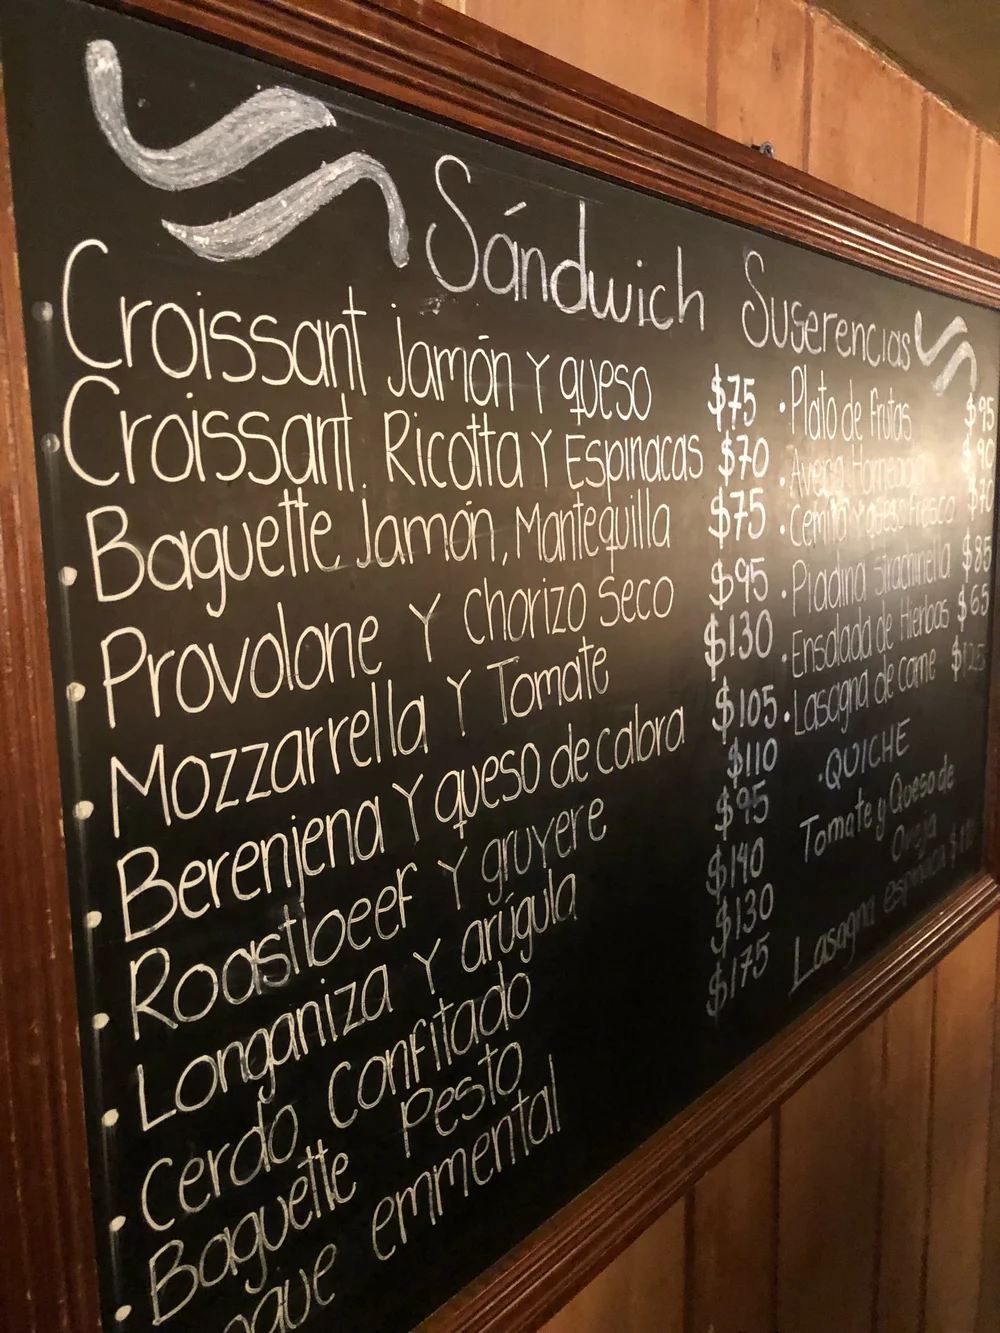 Sándwich
Croissant jamón Y queso $75
Croissant Ricotta Y Espinacas $70
Baguette Jamón, Mantequilla $75
Provolone Y Chorizo Seco $95
Mozzarrella Y Tomate $130
Berenjena Y queso de cabra $105
Roastbeef Y gruyere $110
Longaniza Y arúgula $95
Cerdo Confitado $140
Baguette Pesto $130
emmental $175
Sugerencias
Plato de frutas $95
Avena $90
Cemita Y queso fresco $70
Piadina Strachinella $85
Ensalada de Hierbas $65
Lasagna de carne $125
QUICHE
Tomate y Queso de
Oveja
Lasagna espinaca